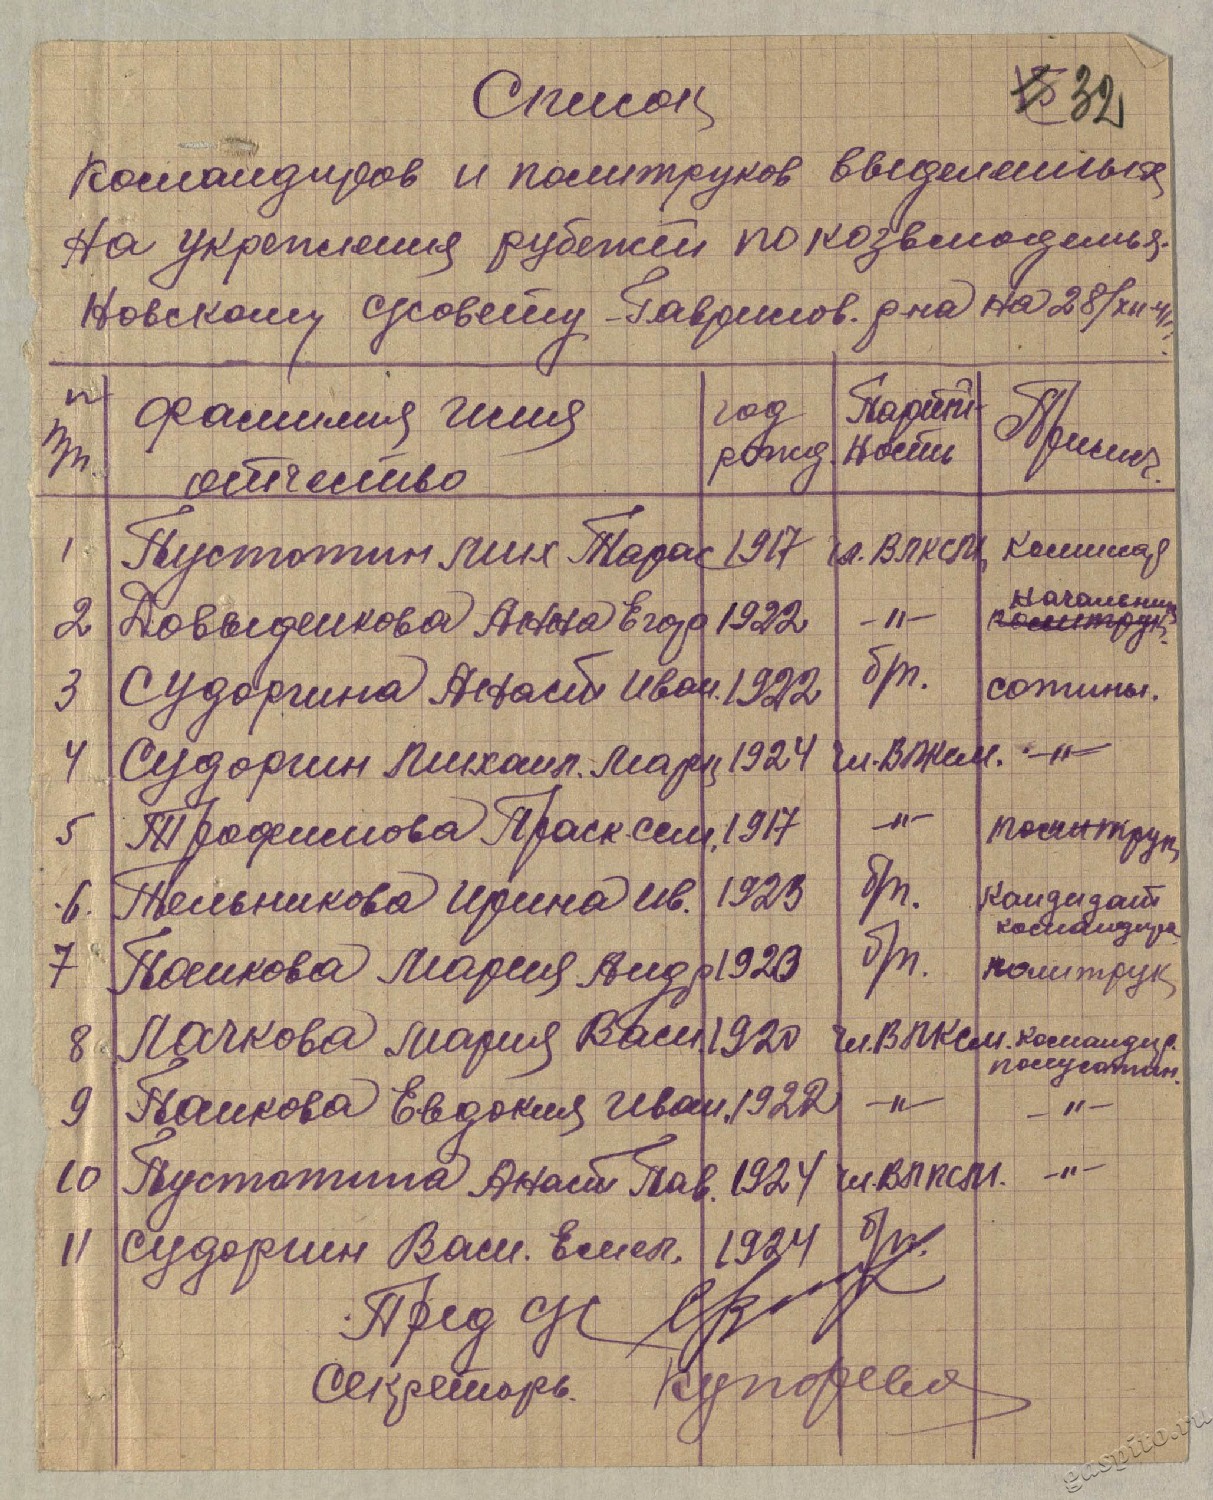 Список
32
командиров и политруков выделенных
на укрепления рубежей по козьмодемья-
новскому с/совету Гаврилов. р-на на 28/XII-41г.
п/п. Фамилия Имя отчество год рожд. Партий-ность Примеч.
1 Пустотин Мих Тарас 1917 чл. ВЛКСМ, комиссар
2 Довыденкова Анна Егор 1922 -"- начальник политрук.
3 Сударгина Анаст Иван. 1922 б/п. сотины.
4 Сударгин Михаил. Марк 1924 чл. ВЛКСМ. -"-
5 Трофимова Праск. сем. 1917 -"- политрук
6. Тельникова Ирина Ив. 1923 б/п. кандидат командира
7 Панкова Мария Андр 1923 б/п. политрук
8 Лачкова Мария Васил. 1920 чл. ВЛКСМ. командир. полусотин.
9 Панкова Евдокия Иван. 1922 -"- -"-
10 Пустотина Анаст Пав. 1924 чл. ВЛКСМ. -"-
11 Сударгин Васил. Емел. 1924 б/п.
Пред с/с
Секретарь.
gaspito.ru